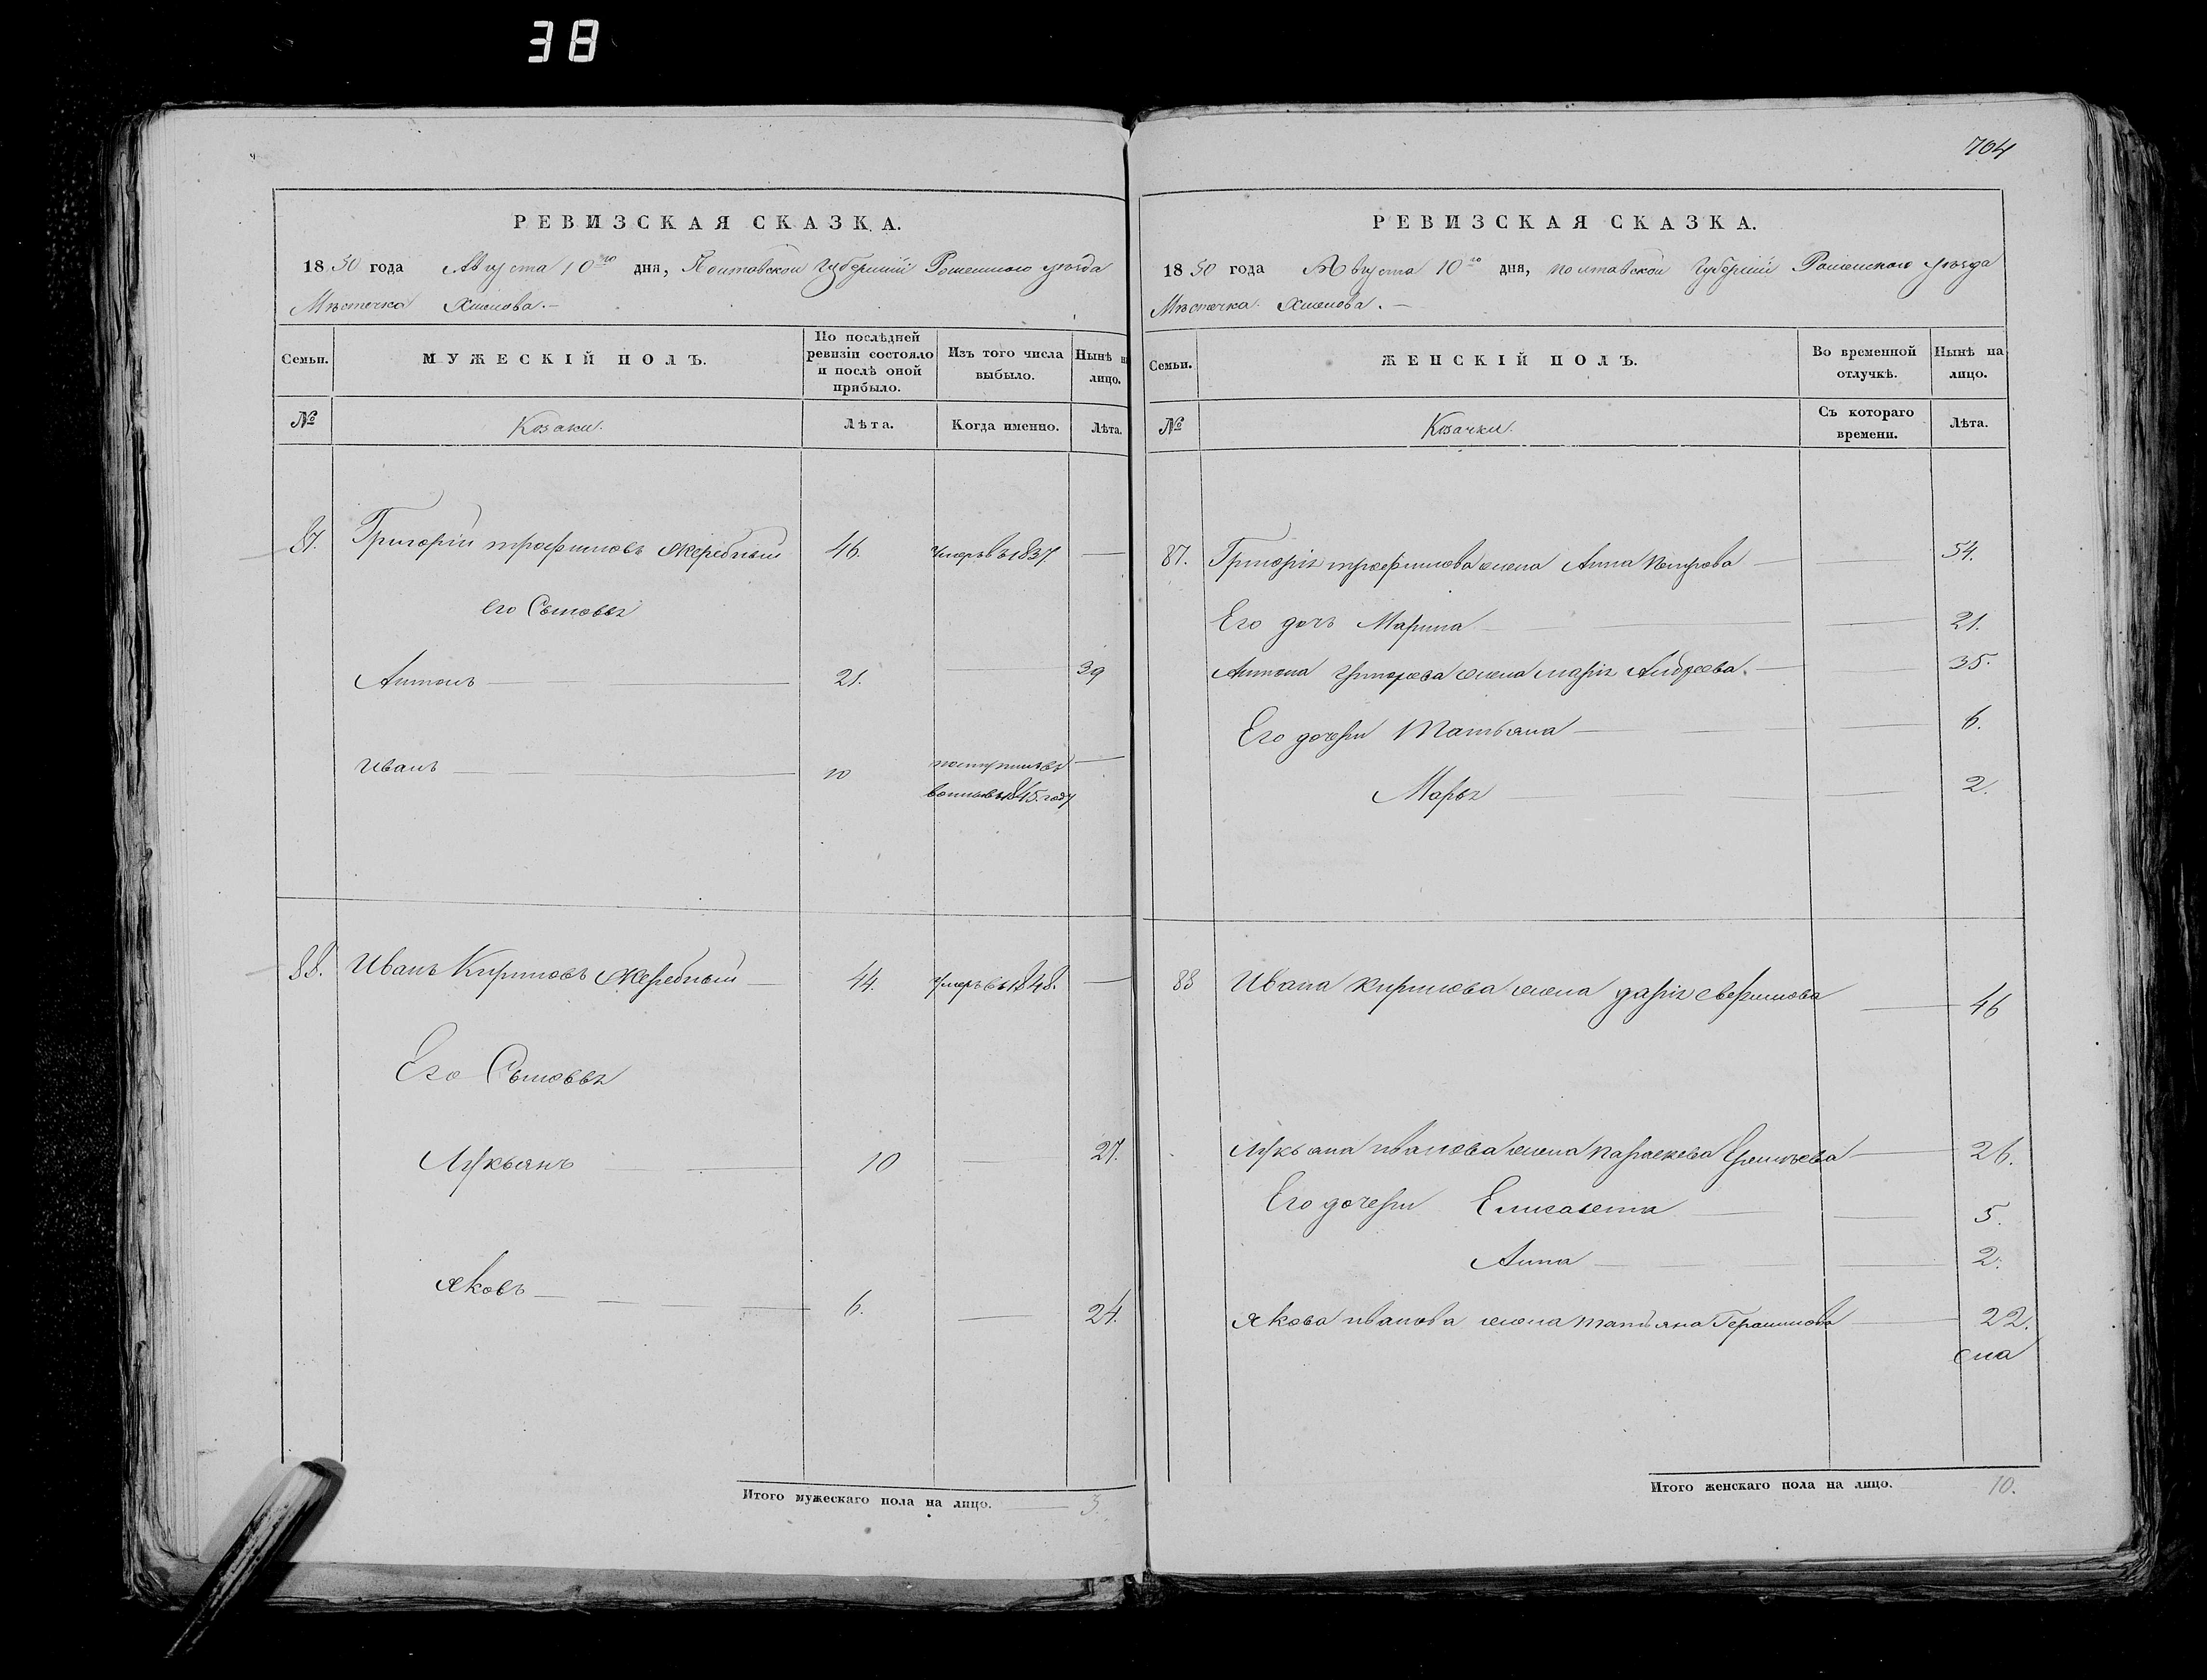 38
РЕВИЗСКАЯ СКАЗКА.
1850 года Августа 10го дня, Полтавской Губернии Роменского уезда
Местечка Хмелова.
Семьи. МУЖЕСКІЙ ПОЛЪ. По послѣдней ревизіи состояло и послѣ оной прибыло. Изъ того числа выбыло. Нынѣ на лицо.
№ Козаки. Лѣта. Когда именно. Лѣта.
87. Григорій Трофимовъ Жеребный 46. умеръ въ 1837. —
его Сыновья
Антонъ — 21. — 39
Иванъ — 10 поступилъ въ —
1845. году
88. Иванъ Кириловъ Жеребный — 44. умеръ въ 1848. —
Его Сыновья
Лукьянъ — 10 — 27.
Яковъ — 6. — 24.
Итого мужескаго пола на лицо. — 3.
704
РЕВИЗСКАЯ СКАЗКА.
1850 года Августа 10го дня, полтавской Губерніи Роменского уезда
Местечка Хмелова. —
Семьи. ЖЕНСКІЙ ПОЛЪ. Во временной отлучкѣ. Нынѣ на лицо.
№ Козачки. Съ котораго времени. Лѣта.
87. Григорія трофимова жена Анна Петрова — 54.
Его дочь Марина — 21.
Антона григорева жена марія Андреева. — 35.
Его дочери Татьяна — 6.
Марья — 2.
88 Ивана кирилова жена дарія — 46
Лукьяна иванова жена параскева — 26.
Его дочери Елисавета — 5.
Анна — 2.
якова иванова жена татьяна Герасимова — 22.
Итого женскаго пола на лицо. 10.